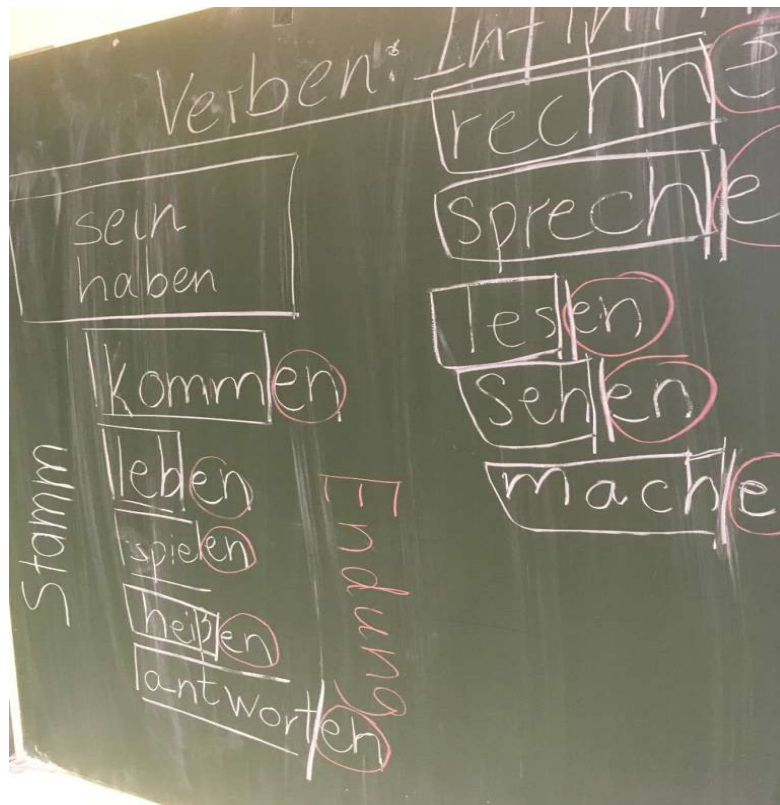 Verben:
sein
haben
kommen
leben
spielen
heißen
antworten
Stamm
Endung
rechne
spreche
lesen
sehen
mache